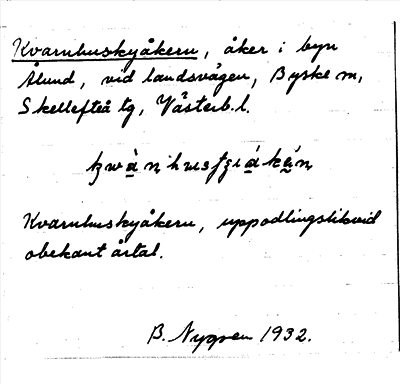 Kvarnhuskyåkern, åker i byn
Ålund, vid landsvägen, Byske sn,
Skellefteå tg, Västerb. l.
Kvarnhuskyåkern, uppodlingstikvid
obekant årtal.
B. Nygren 1932.